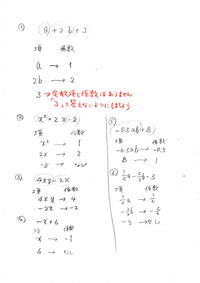 ①
a + 2b + 3
項 係数
a → 1
2b → 2
3 → 定数項に係数はありません
「3」って答えないようにしましょう
②
x² + 2x - 2
項 係数
x² → 1
2x → 2
-2 → なし
③
4xy - 2x
項 係数
4xy → 4
-2x → -2
④
-x + 6
項 係数
-x → -1
6 → なし
⑤
-0.5ab + B
項 係数
-0.5ab → -0.5
B → 1
⑥
項 係数
-3 → なし